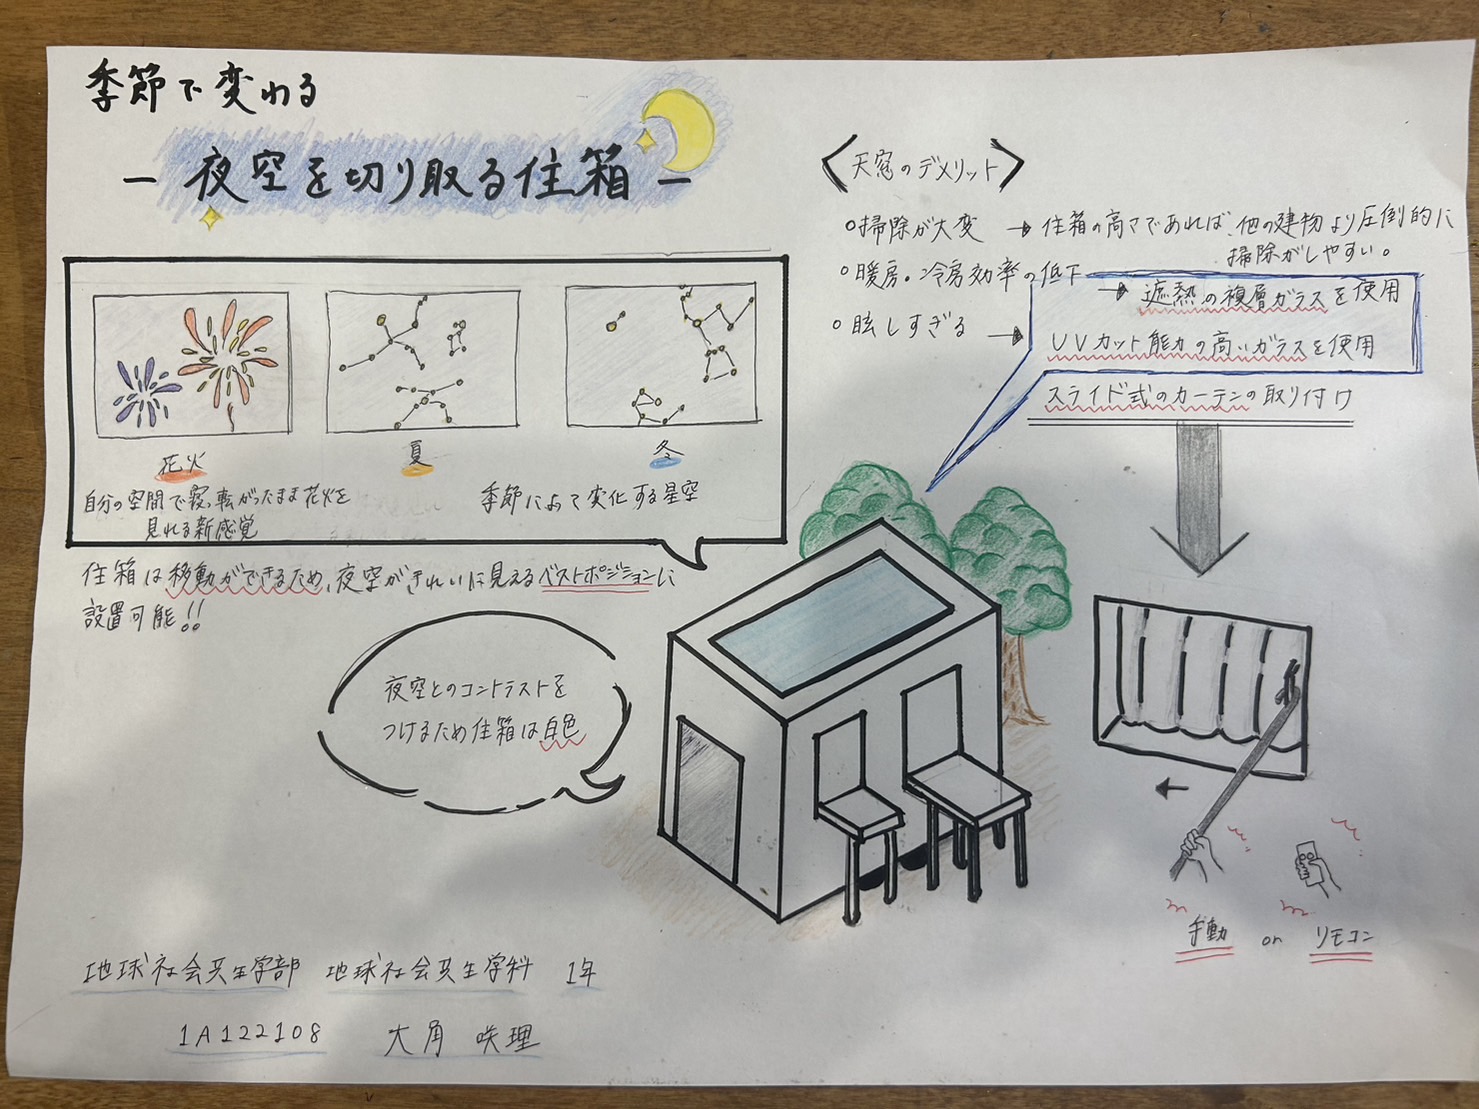 季節で変わる
－ 夜空を切り取る住箱 －
花火
自分の空間で寝っ転がったまま花火を
見れる新感覚
夏
冬
季節によって変化する星空
住箱は移動ができるため、夜空がきれいに見えるベストポジションに
設置可能!!
夜空とのコントラストを
つけるため住箱は白色
〈天窓のデメリット〉
○掃除が大変 → 住箱の高さであれば、他の建物より圧倒的に
掃除がしやすい。
○暖房・冷房効率の低下
→ 遮熱の複層ガラスを使用
○眩しすぎる →
UVカット能力の高いガラスを使用
スライド式のカーテンの取り付け
手動 or リモコン
地球社会共生学部 地球社会共生学科 1年
1A122108 大角 咲理